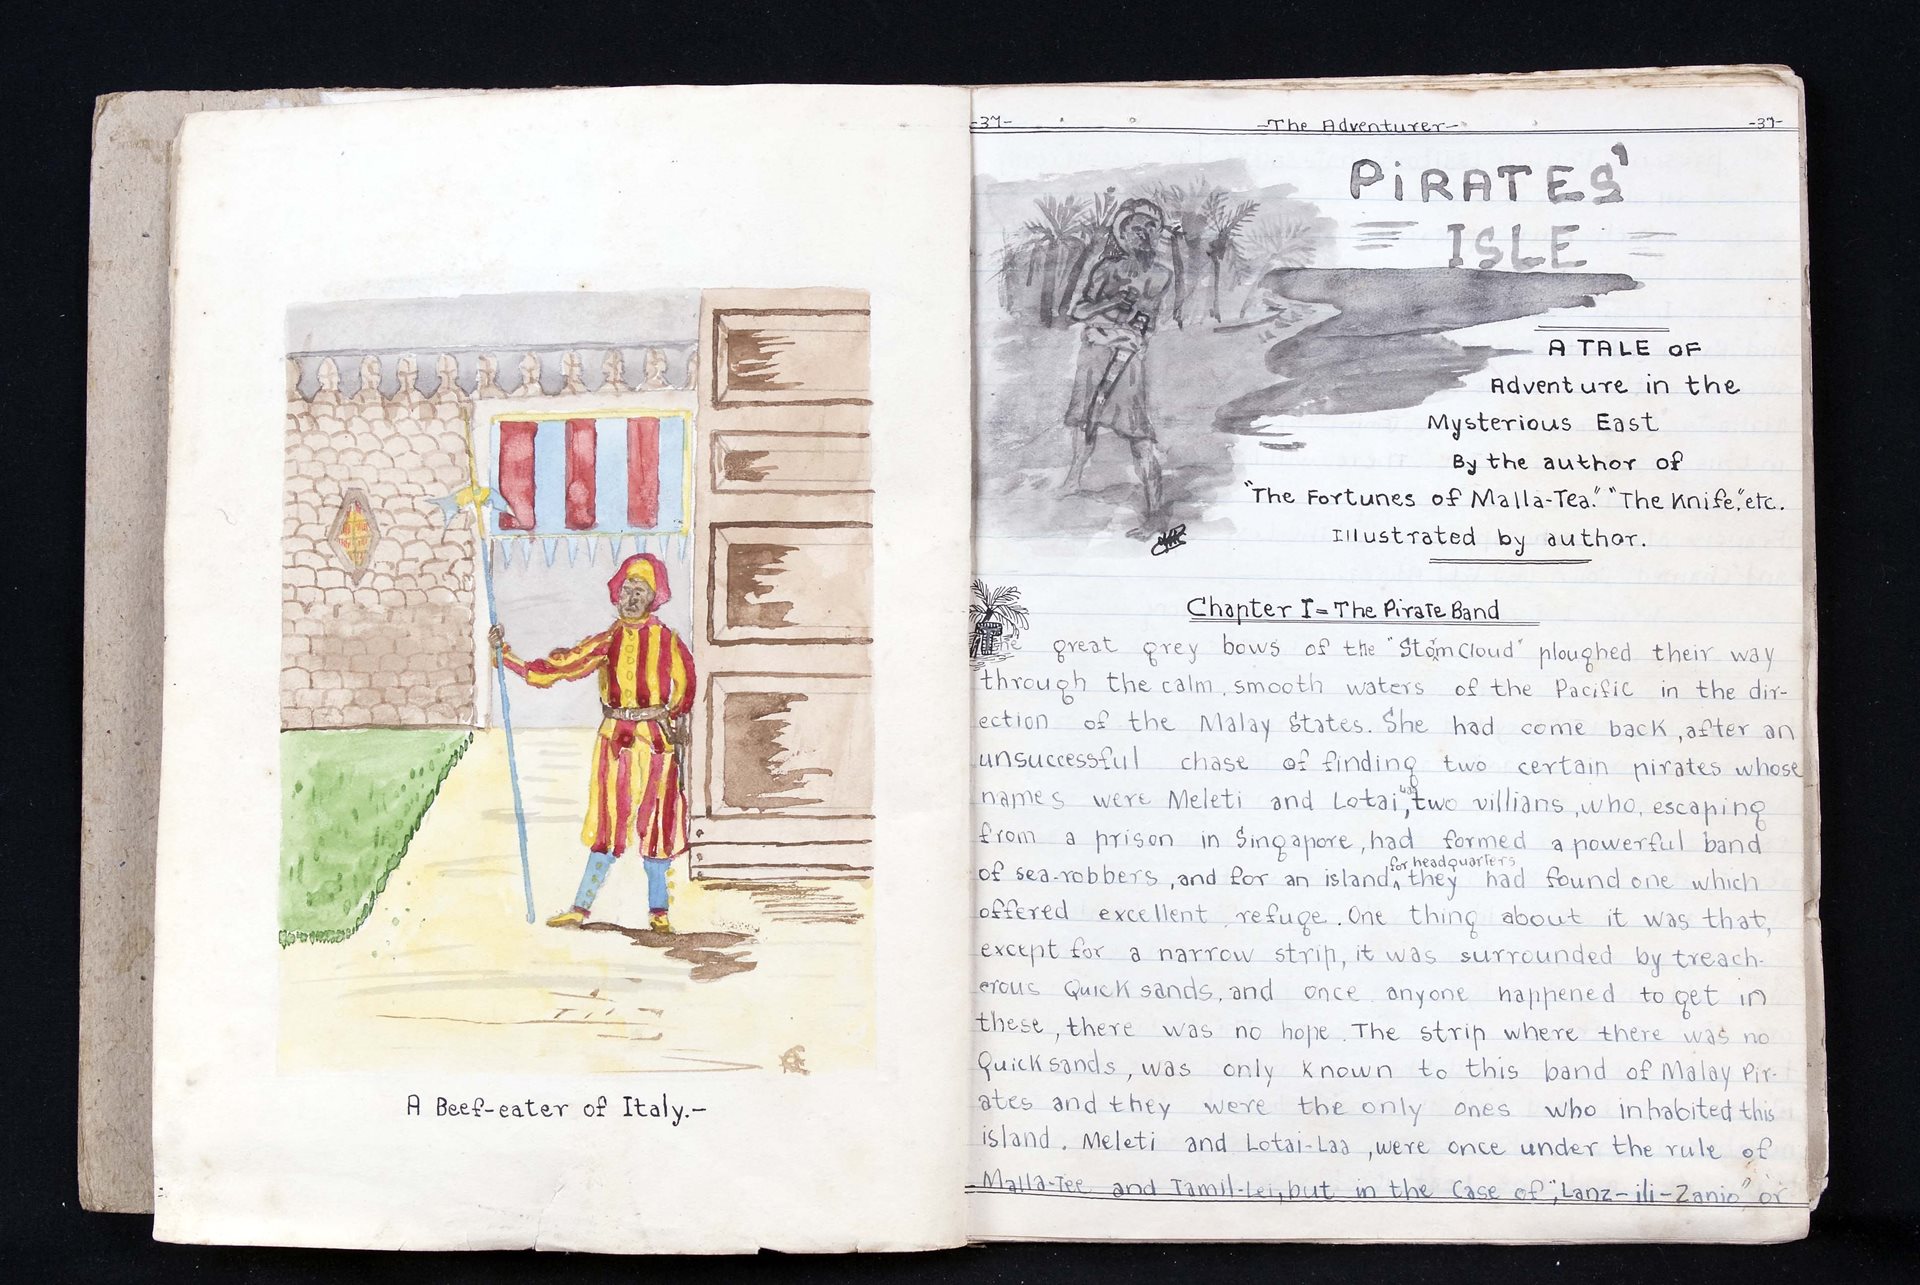 A Beef-eater of Italy.-
-37- -The Adventurer- -37-
PIRATES'
ISLE
A TALE OF
Adventure in the
Mysterious East
By the author of
"The Fortunes of Malla-Tea." "The Knife," etc.
Illustrated by author.
Chapter I = The Pirate Band
The great grey bows of the "Storm Cloud" ploughed their way
through the calm, smooth waters of the Pacific in the dir-
ection of the Malay States. She had come back, after an
unsuccessful chase of finding two certain pirates whose
names were Meleti and Lotai, two villians, who, escaping
from a prison in Singapore, had formed a powerful band
of sea-robbers, and for an island for headquarters they had found one which
offered excellent refuge. One thing about it was that,
except for a narrow strip, it was surrounded by treach-
erous Quick sands, and once anyone happened to get in
these, there was no hope. The strip where there was no
Quick sands, was only known to this band of Malay Pir-
ates and they were the only ones who inhabited this
island. Meleti and Lotai-Laa, were once under the rule of
Malla-Tee and Tamil-Lei, but in the Case of, "Lanz-ili-Zanio" or